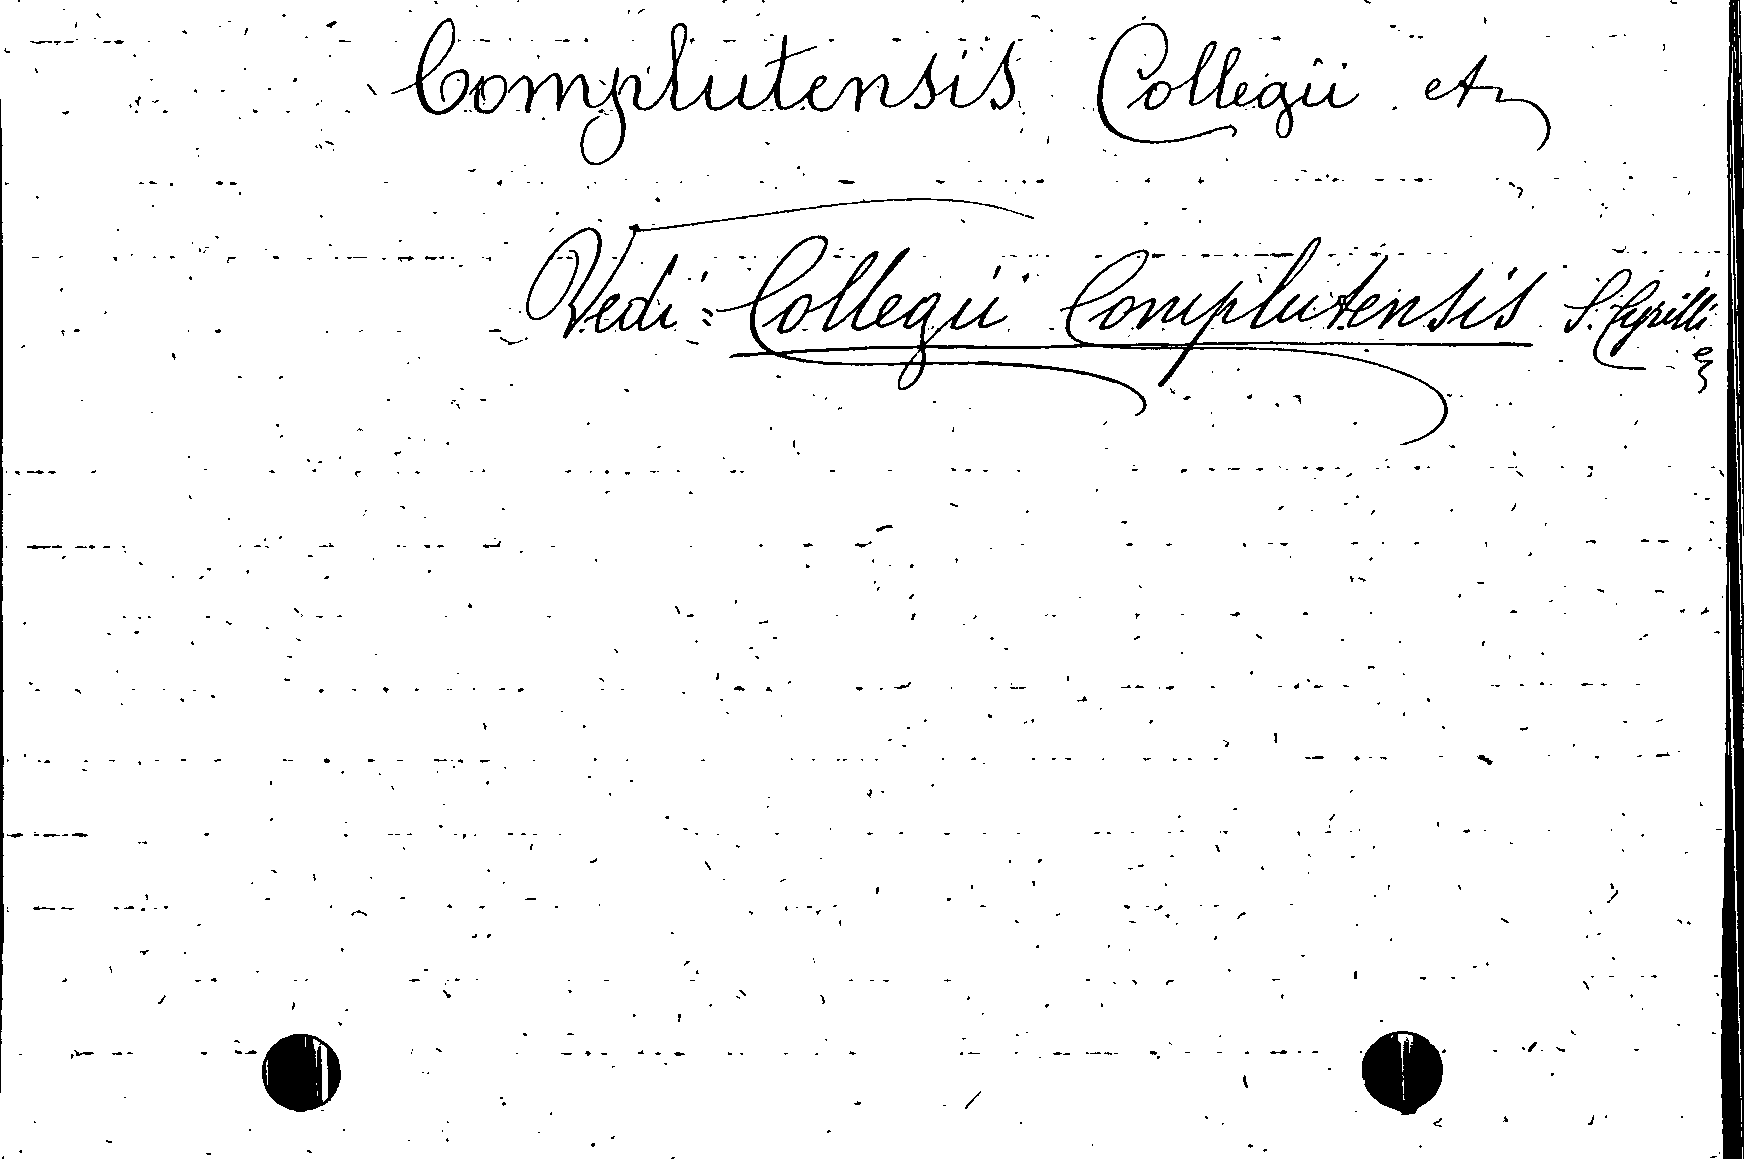 Complutensis Collegii etc
Vedi: Collegii Complutensis S. Cyrilli